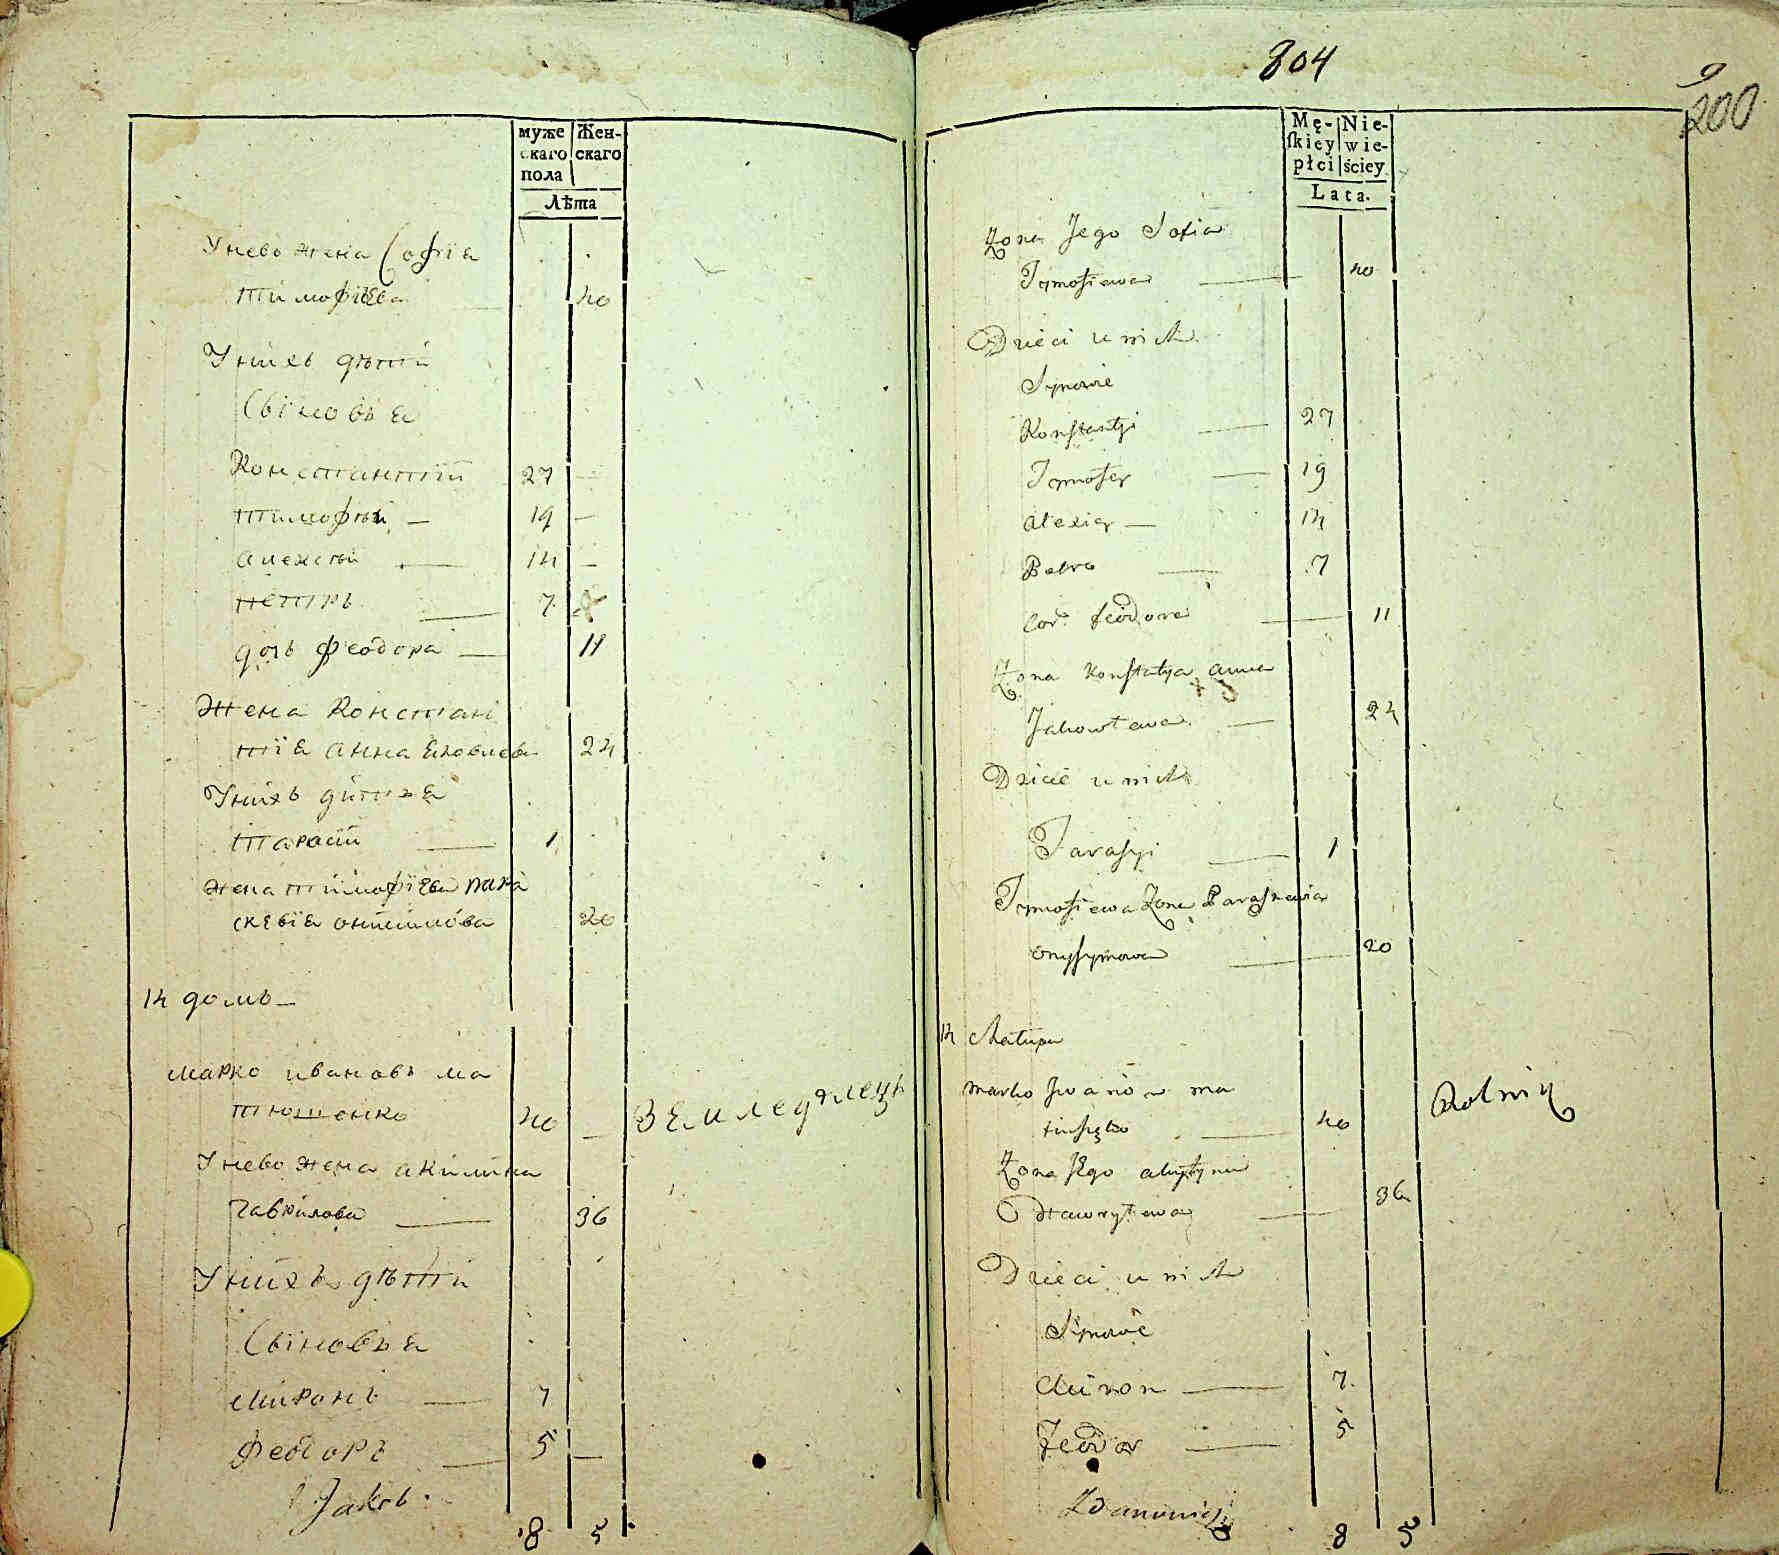 муже Жен-
скаго скаго
пола
Лѣта
У нево жена Софія
тимофіева 40
У нихъ дѣти
Сыновья
Константій 27 —
тимофѣй — 19 —
алексѣй — 14 —
петръ — 7
дочь феодора — 11
Жена Констан
тія анна яковлева 24
У нихъ дитя
тарасій — 1
жена тимофіева пара
скевія онисимова 20
14 домъ —
марко ивановъ ма
тюшенко 40 — Земледѣлецъ
У нево жена акилина
гаврилова — 36
У нихъ дѣти
Сыновья
миронъ — 7
феодоръ — 5 —
Jakob
8 5
804
9
200
Mę- Nie-
skiey wie-
płci ściey
Lata.
Żona Jego Zofia
Tymofiewa — 40
Dzieci u nich
Synowie
Konstantyi — 27
Tymofey — 19
alexiey — 14
Petro — 7
cor. feodora — 11
Żona Konstatya anna
Jakowlewa — 24
Dziecie u nich
Tarasyi — 1
Tymofiewa Żona Paraskewia
onysymowa — 20
14 Chałupa
marko Jwanow ma
tiuszęko — 40 Rolnik
Żona Jego akylyna
Hawryłewa — 36
Dzieci u nich
Synowie
Miron — 7
feodor — 5
Zdanowicz
8 5